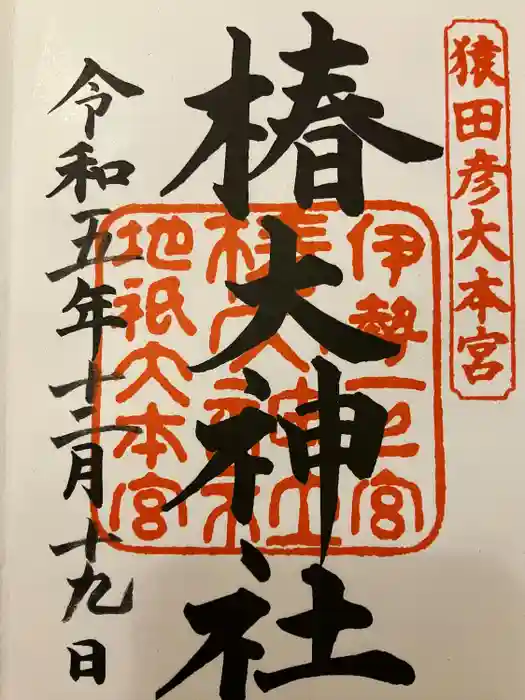 猿田彦大本宮
椿大神社
伊勢一宮
椿大神社
地祇大本宮
令和五年十二月十九日